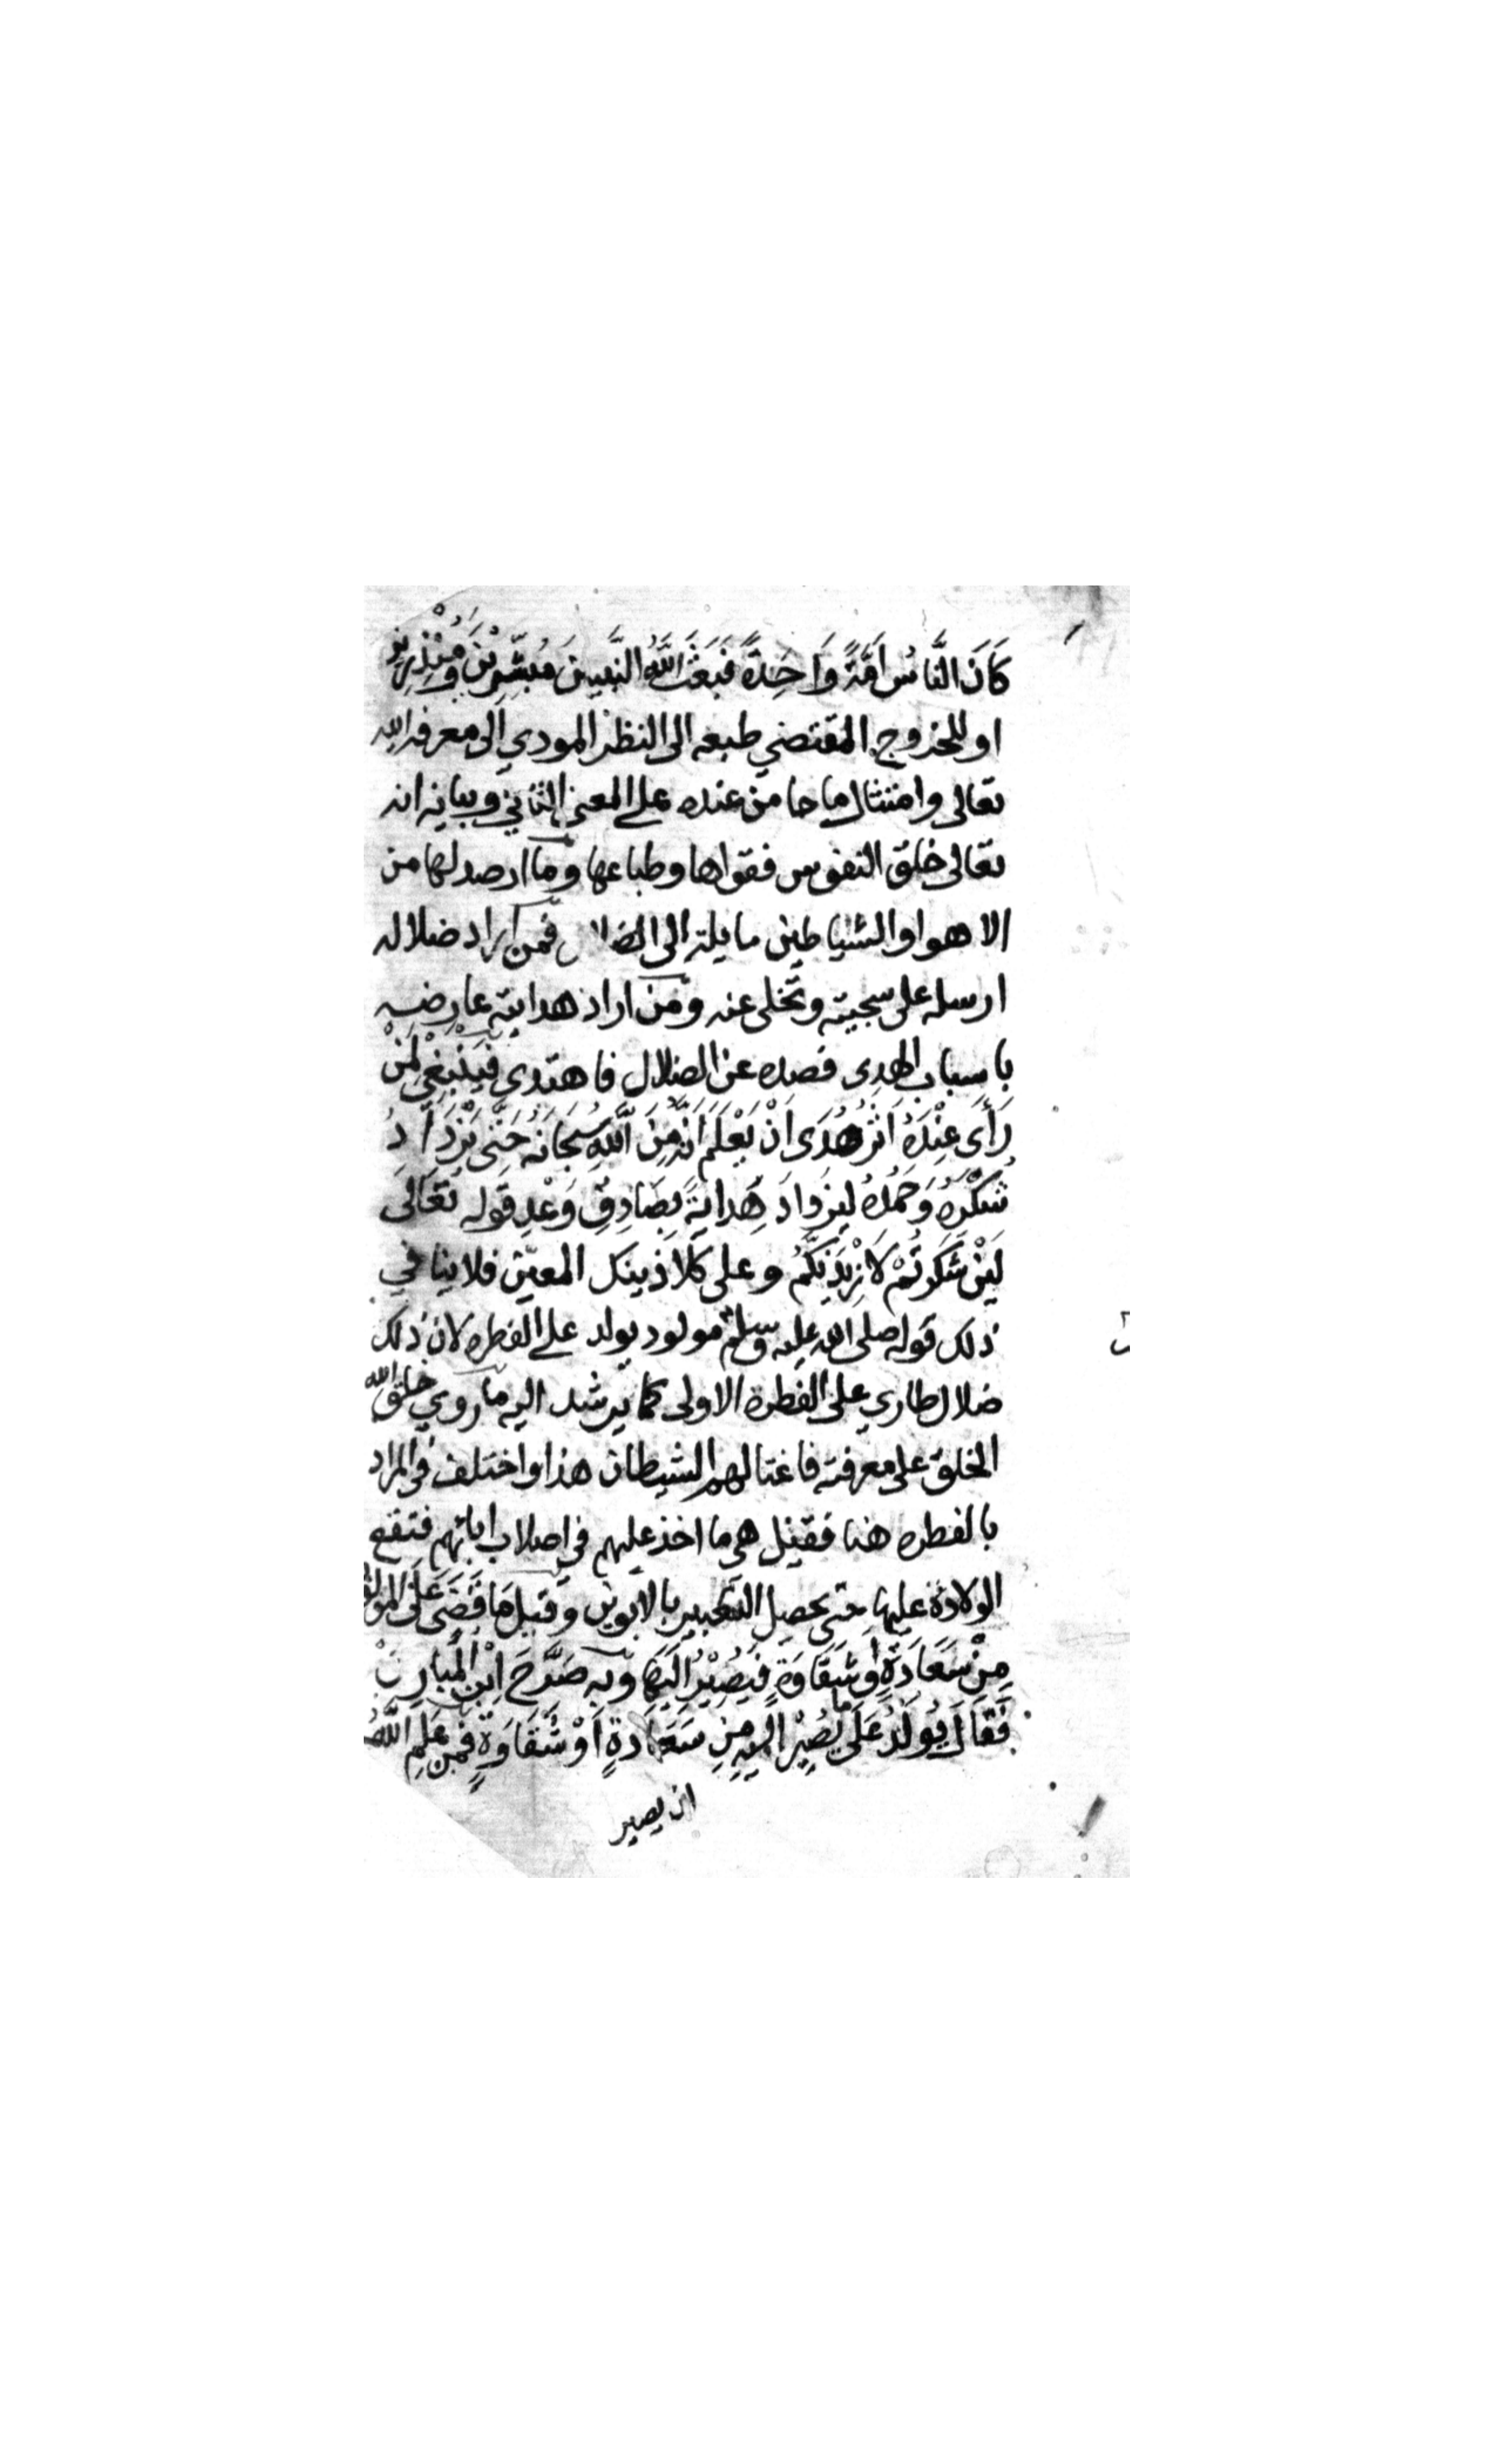 كَانَ النَّاسُ اُمَّةً وَاحِدَةً فَبَعَثَ اللَّهُ النَّبِيينَ مُبَشِّرِيْنَ وَمُنْذِرِيْنَ
او للخروج المقتضي طبعه الى النظر المودي الى معرفه الله
تعالى وامتثال ما جا من عنده على المعنى الثاني وبيانه انه
تعالى خلق النفوس فقواها وطباعها وما ارصد لها من
الاهوا والشياطين مايلة الى الضلال فمن اراد ضلاله
ارسله على سجيته وتخلى عنه ومن اراد هدايته عارضه
باسباب الهدى فصده عن الضلال فاهتدي فَيَنْبَغِي لِمَنْ
رَأَى عِنْدَهُ اَثَرُ هُدَى اَنْ يَعْلَمَ اَنَّه مِنَ اللَّهِ سُبحَانَه حَتَّى يَزْدَادُ
شُكْرُهُ وَحَمْدُهُ ليزدادَ هِدَايَةً بِصَادِقِ وَعْدِ قوله تَعَالَى
لَئِنْ شَكَرْتُمْ لَازِيْدَنَّكُمْ وعلى كلا ذينك المعنيين فلا ينافي
ذلك قوله صلى الله عليه وسلم مولود يولد على الفطره لان ذلك
ضلال طاري على الفطرة الاولى كما يرشد اليه ما روي خلق الله
الخلق على معرفته فاغتالهم الشيطان هذا واختلف في المراد
بالفطره هنا فقيل هي ما اخذ عليهم في اصلاب ابائهم فتقع
الولادة عليها حتى يحصل التغيير بالابوين وقيل مَا قَضَى عَلَى المولود
مِنْ سَعَادَةٍ اَوْ شَقَاوَةٍ فَيَصِيْرُ اِلَيْهَا وبه صَرَّحَ اِبْن المُبارك
فَقَالَ يُولَدُ عَلَى ما يَصِيْرُ اليه مِنِ سَعَادَةٍ اَوْ شَقَاوَةٍ فمن عَلِمَ اللَّهُ
انه يصير